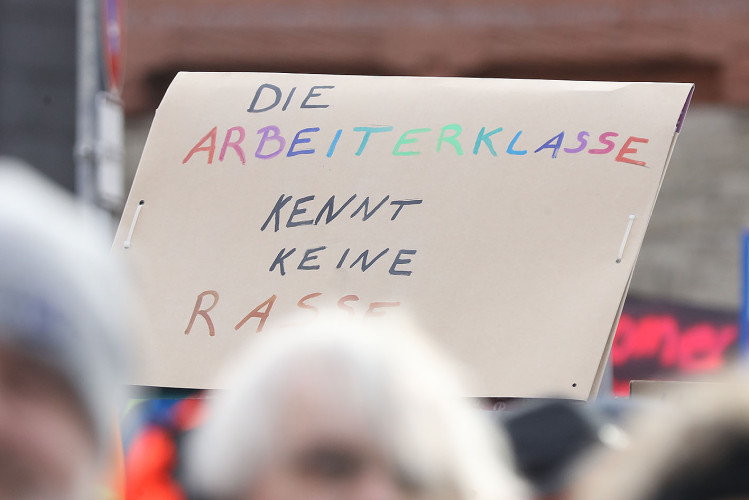 DIE
ARBEITERKLASSE
KENNT
KEINE
RASSE